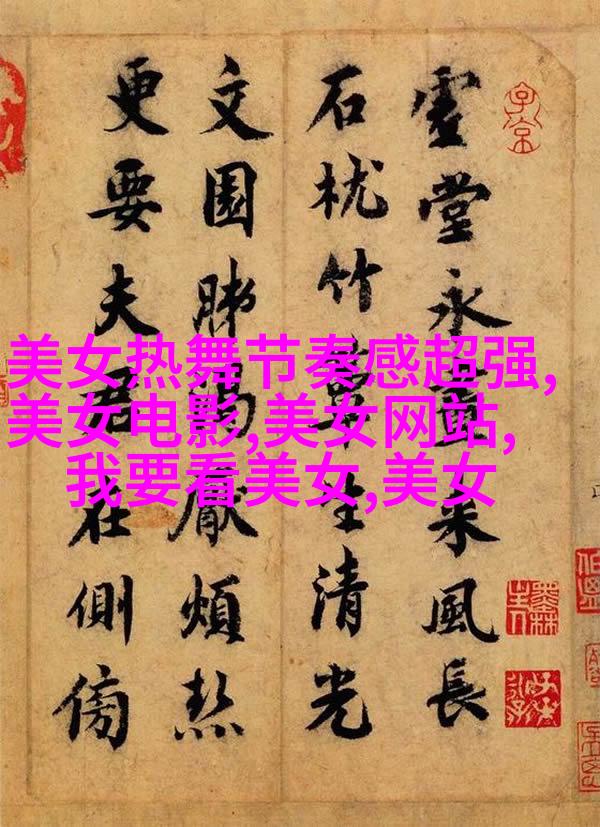 虛堂永晝来風長
石枕竹簟生清光
文園肺渴厭煩熱
更要夫君在側傍
美女热舞节奏感超强,
美女电影,美女网站,
我要看美女,美女